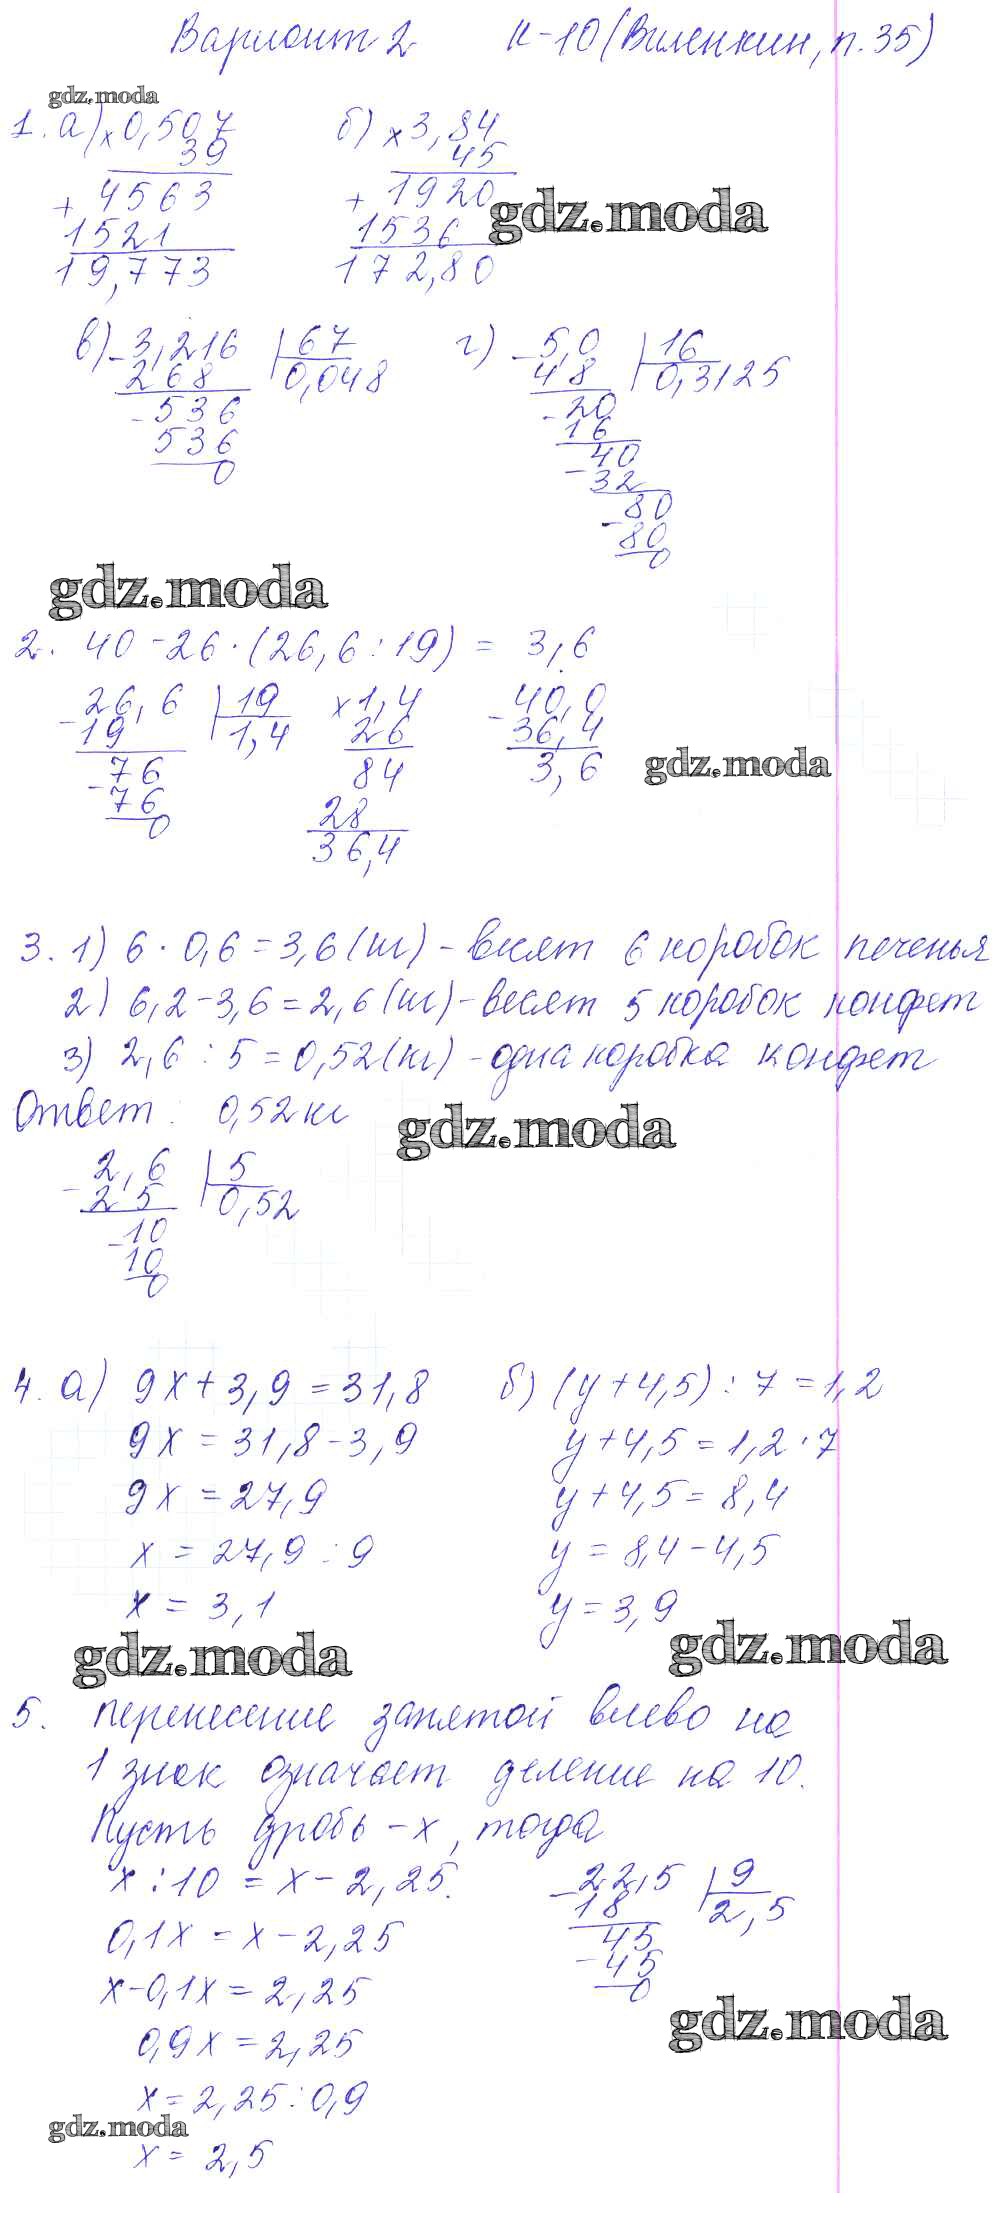 Вариант 2 К-10 (Виленкин, п.35)
gdz.moda
1. а) × 0,507 б) × 3,84
39 45
+ 4563 + 1920
gdz.moda
1521 1536
19,773 172,80
в) - 3,216 67 г) - 5,0 16
268 0,048 48 0,3125
- 536 - 20
536 16
0 - 40
32
- 80
80
0
gdz.moda
2. 40 - 26 · (26,6 : 19) = 3,6
- 26,6 19 × 1,4 - 40,0
19 1,4 26 36,4
- 76 84 3,6
gdz.moda
76 28
0 36,4
3. 1) 6 · 0,6 = 3,6 (кг) - весят 6 коробок печенья
2) 6,2 - 3,6 = 2,6 (кг) - весят 5 коробок конфет
3) 2,6 : 5 = 0,52 (кг) - одна коробка конфет
Ответ: 0,52 кг
gdz.moda
- 2,6 5
2 5 0,52
- 10
10
0
4. а) 9x + 3,9 = 31,8 б) (y + 4,5) : 7 = 1,2
9x = 31,8 - 3,9 y + 4,5 = 1,2 · 7
9x = 27,9 y + 4,5 = 8,4
x = 27,9 : 9 y = 8,4 - 4,5
x = 3,1 y = 3,9
gdz.moda gdz.moda
5. перенесение запятой влево на
1 знак означает деление на 10.
Пусть дробь - x, тогда
x : 10 = x - 2,25. - 22,5 9
0,1x = x - 2,25 18 2,5
x - 0,1x = 2,25 - 45
0,9x = 2,25 45
x = 2,25 : 0,9 0
gdz.moda
gdz.moda
x = 2,5